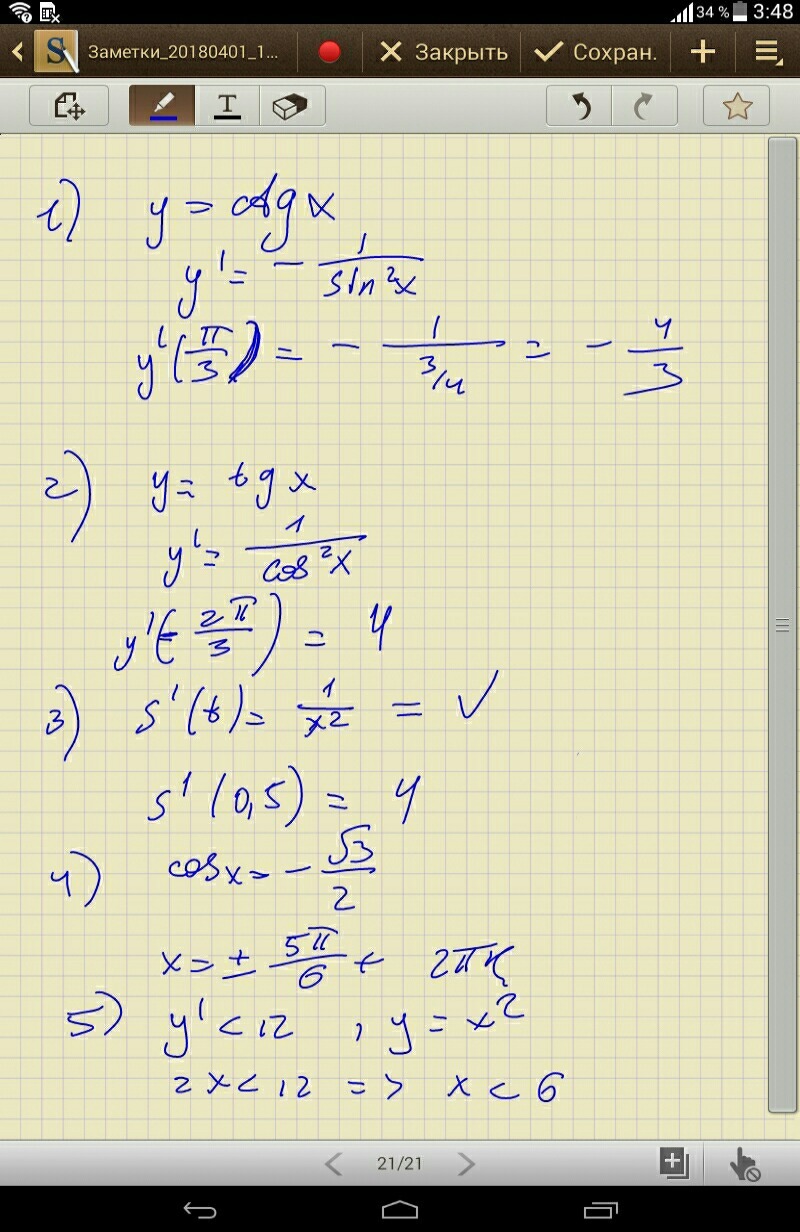 34 % 3:48
Заметки_20180401_1... Закрыть Сохран.
T
1) y = ctg x
y' = - 1/sin²x
y'(π/3) = - 1/(3/4) = - 4/3
2) y = tg x
y' = 1/cos²x
y'(-2π/3) = 4
3) s'(t) = 1/x² = V
s'(0,5) = 4
4) cos x = - √3/2
x = ± 5π/6 + 2πk
5) y' < 12 , y = x²
2x < 12 => x < 6
21/21